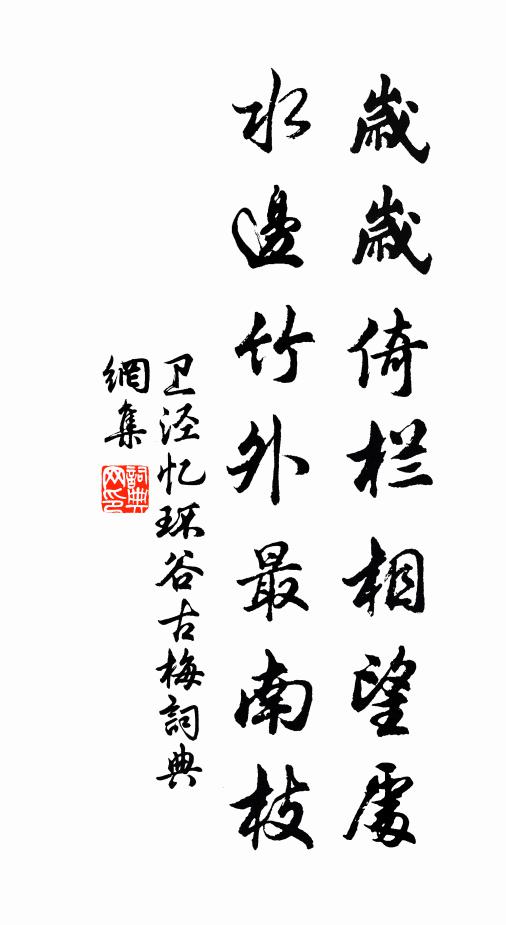 歲歲倚栏相望處
水邊竹外最南枝
卫泾忆环谷古梅詞典
網集
詞典網印